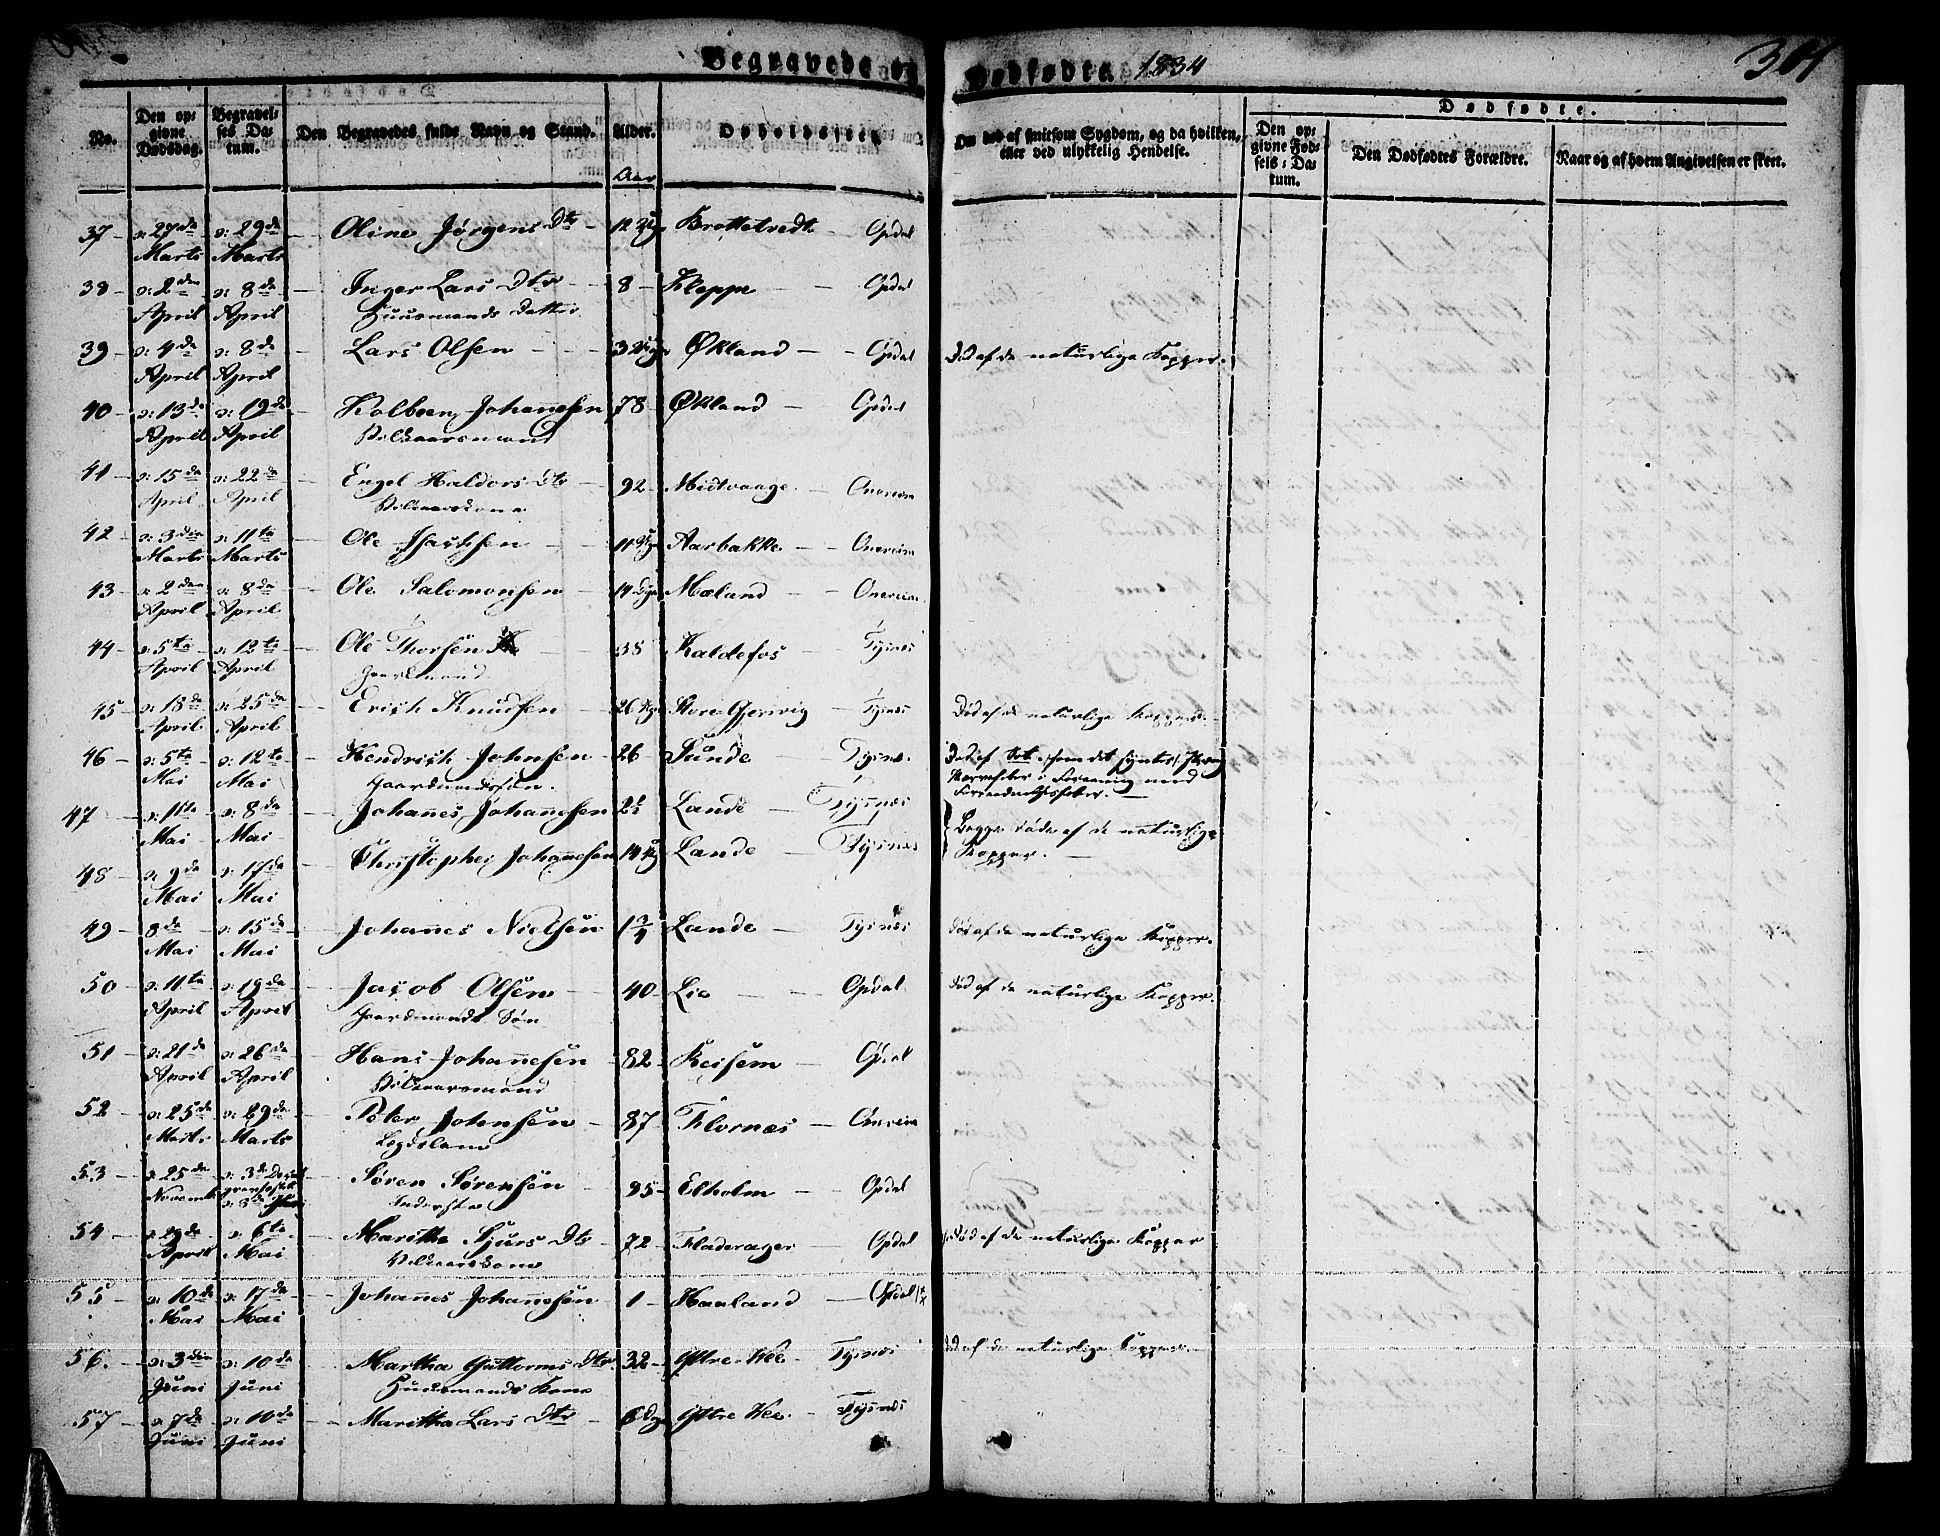 Begravede og Dødfødte. 1834
304
No.
Den opgivne Dødsdag.
Begravelses Datum.
Den Begravedes fulde Navn og Stand.
Alder.
Aar
Opholdssted.
Om død af smitsom Sygdom, og da hvilken, eller ved ulykkelig Hendelse.
Dødfødte.
Den opgivne Fødsels-Datum.
Den Dødfødtes Forældre.
Naar og af hvem Angivelsen er skeet.
37 d: 27de d: 29de Oline Jørgens Dtr 12 Brottetvedt Opdal
Marts Marts
38 d: 2den d: 8de Inger Lars Dtr 8 Kleppe Opdal
April April Huusmands Datter
39 d: 4de d: 8de Lars Olsen 3 Økland Opdal Død af de naturlige Kopper.
April April
40 d: 13de d: 19de Kolbeen Johannesen 78 Økland Opdal
April April Vilkaarsmand
41 d: 15de d: 22de Engel Haldors Dtr 92 Midtvaage Onareim
April April Vilkaarskone
42 d: 3den d: 11te Ole Isachsen 11 Aarbakke Onareim
Marts Marts
43 d: 2den d: 8de Ole Salomonsen 14 Dge Mæland Onareim
April April
44 d: 5te d: 12te Ole Thorsen 38 Kaldefos Tysnes
April April Gaardmand
45 d: 18de d: 25de Erich Knudsen 26 Store Gjerevig Tysnes Død af de naturlige Kopper.
April April
46 d: 5te d: 12te Hendrich Johnsen 26 Sunde Tysnes Død af som det syntes
Mai Mai Gaardmandssøn. Nervefeber i Forening med
Forraadnelsesfeber.
47 d: 11te d: 8de Johannes Johannesen 2½ Lande Tysnæs Begge døde af de naturlige
Mai Mai Kopper.
48 d: 9de d: 17de Christopher Johannesen 14 Lande Tysnæs
Mai Mai
49 8de d: 15de Johannes Nielsen 1¾ Lande Tysnæs Død af de naturlige Kopper.
Mai Mai
50 d: 11te d: 19de Jacob Olsen 40 Lie Opdal Død af de naturlige Kopper.
April April Gaardmands Søn
51 d: 21de d: 26de Hans Johannesen 82 Reisem Opdal
April April Vilkaarsmand
52 d: 25de d: 29de Peter Johnsen 87 Flornæs Onareim
Marts Marts Lægdslem
53 d: 25de d: 3de Søren Sørensen 95 Elholm Opdal
Novemb. Inderste
54 d: 29de d: 6te Maritha Sjurs Dtr 72 Fladerager Opdal Død af de naturlige Kopper
April Mai Vilkaarskone
55 d: 10de d: 17de Johannes Johannesen 1 Haaland Opdal
Mai Mai
56. d: 3den d: 10de Martha Guttorms Dtr 32 Yttre Wee Tysnes Død af de naturlige Kopper.
Juni Juni Huusmands Kone
57 d: 7de d: 10de Maritha Lars Dtr 6 Dge Yttre Wee. Tysnes
Juni Juni